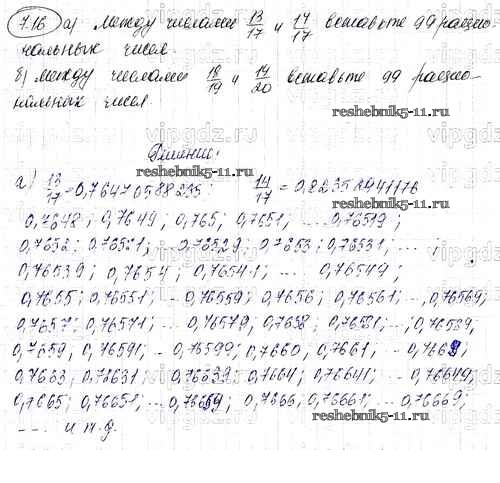 7.16 а) между числами 13/17 и 14/17 вставьте 99 рацио-
нальных чисел.
б) между числами 18/19 и 19/20 вставьте 99 рацио-
нальных чисел.
reshebnik5-11.ru
Решение:
а) 13/17 = 0,76470588235; 14/17 = 0,82352941176
0,7648; 0,7649; 0,765; 0,7651; ... 0,76519;
0,7652; 0,76521; ... 0,76529; 0,7653; 0,76531; ...
0,76539; 0,7654; 0,76541; ... 0,76549;
0,7655; 0,76551; ... 0,76559; 0,7656; 0,76561; ..., 0,76569;
0,7657; 0,76571; ... 0,76579; 0,7658; 0,76581; ...; 0,76589,
0,7659; 0,76591; ... 0,76599; 0,7660; 0,7661; ... 0,7669;
0,7663; 0,76631; ... 0,76639; 0,7664; 0,76641; ... 0,76649;
0,7665; 0,76651; ... 0,76659; 0,7666; 0,76661; ... 0,76669;
.... и т.д.
reshebnik5-11.ru